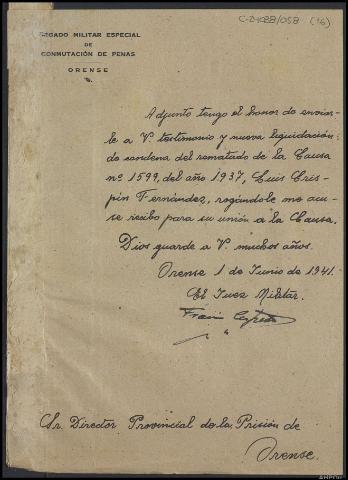 C-24088/058 (16)
JUZGADO MILITAR ESPECIAL
DE
CONMUTACIÓN DE PENAS
ORENSE
Adjunto tengo el honor de enviar-
le a V. testimonio y nueva liquidación
de condena del rematado de la Causa
nº 1599, del año 1937, Luis Cris-
pín Fernández, rogándole me acu-
se recibo para su unión a la Causa.
Dios guarde a V. muchos años.
Orense 1 de Junio de 1941.
El Juez Militar.
Sr. Director Provincial de la Prisión de
Orense.